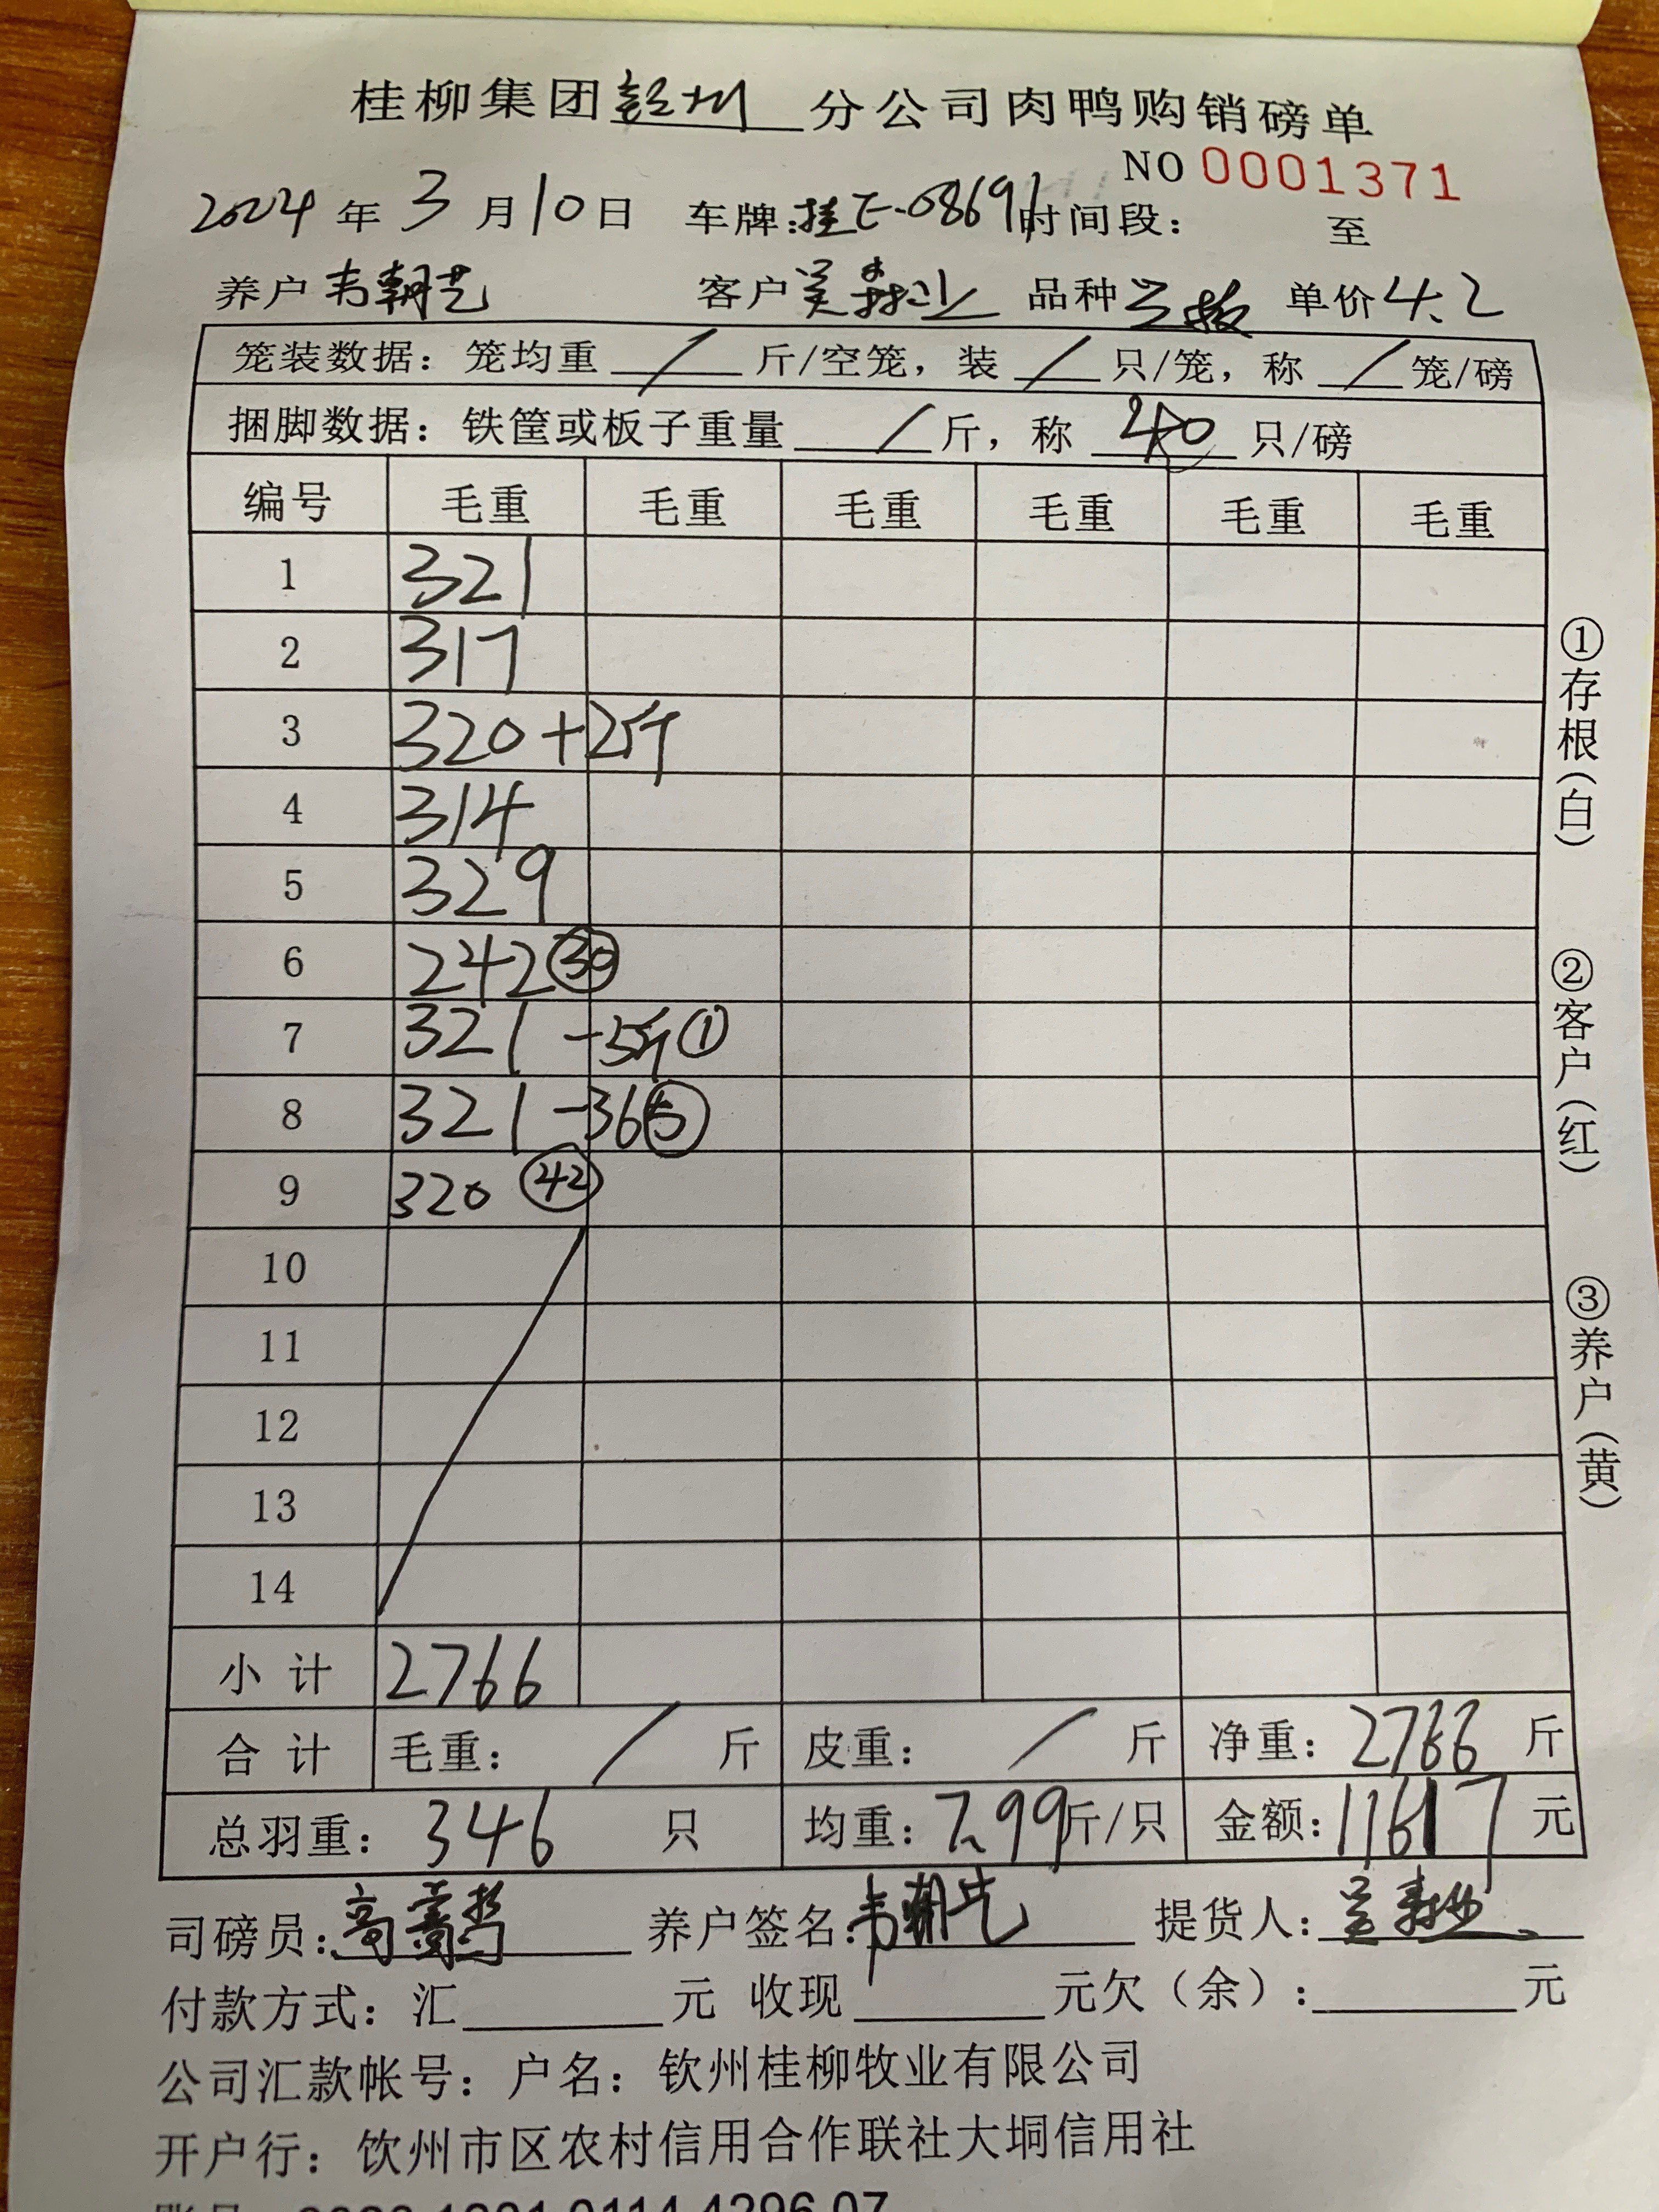 桂柳集团彭州分公司肉鸭购销磅单
NO 0001371
2024年3月10日 车牌:桂E-08691 时间段: 至
养户韦朝艺 客户吴 品种 单价4.2
笼装数据:笼均重/斤/空笼,装/只/笼,称/笼/磅
捆脚数据:铁筐或板子重量/斤,称40只/磅
编号 毛重 毛重 毛重 毛重 毛重 毛重
1 321
2 317
3 320+2斤
4 314
5 329
6 242 ㉚
7 321 -5斤 ①
8 321 -36 ⑤
9 320 ㊷
10
11
12
13
14
小计 2766
合计 毛重: / 斤 皮重: / 斤 净重: 2766 斤
总羽重: 346 只 均重: 7.99斤/只 金额: 11617 元
司磅员:高 养户签名:韦朝艺 提货人:吴
付款方式:汇 元 收现 元欠(余): 元
公司汇款帐号:户名:钦州桂柳牧业有限公司
开户行:饮州市区农村信用合作联社大垌信用社
①存根(白)
②客户(红)
③养户(黄)